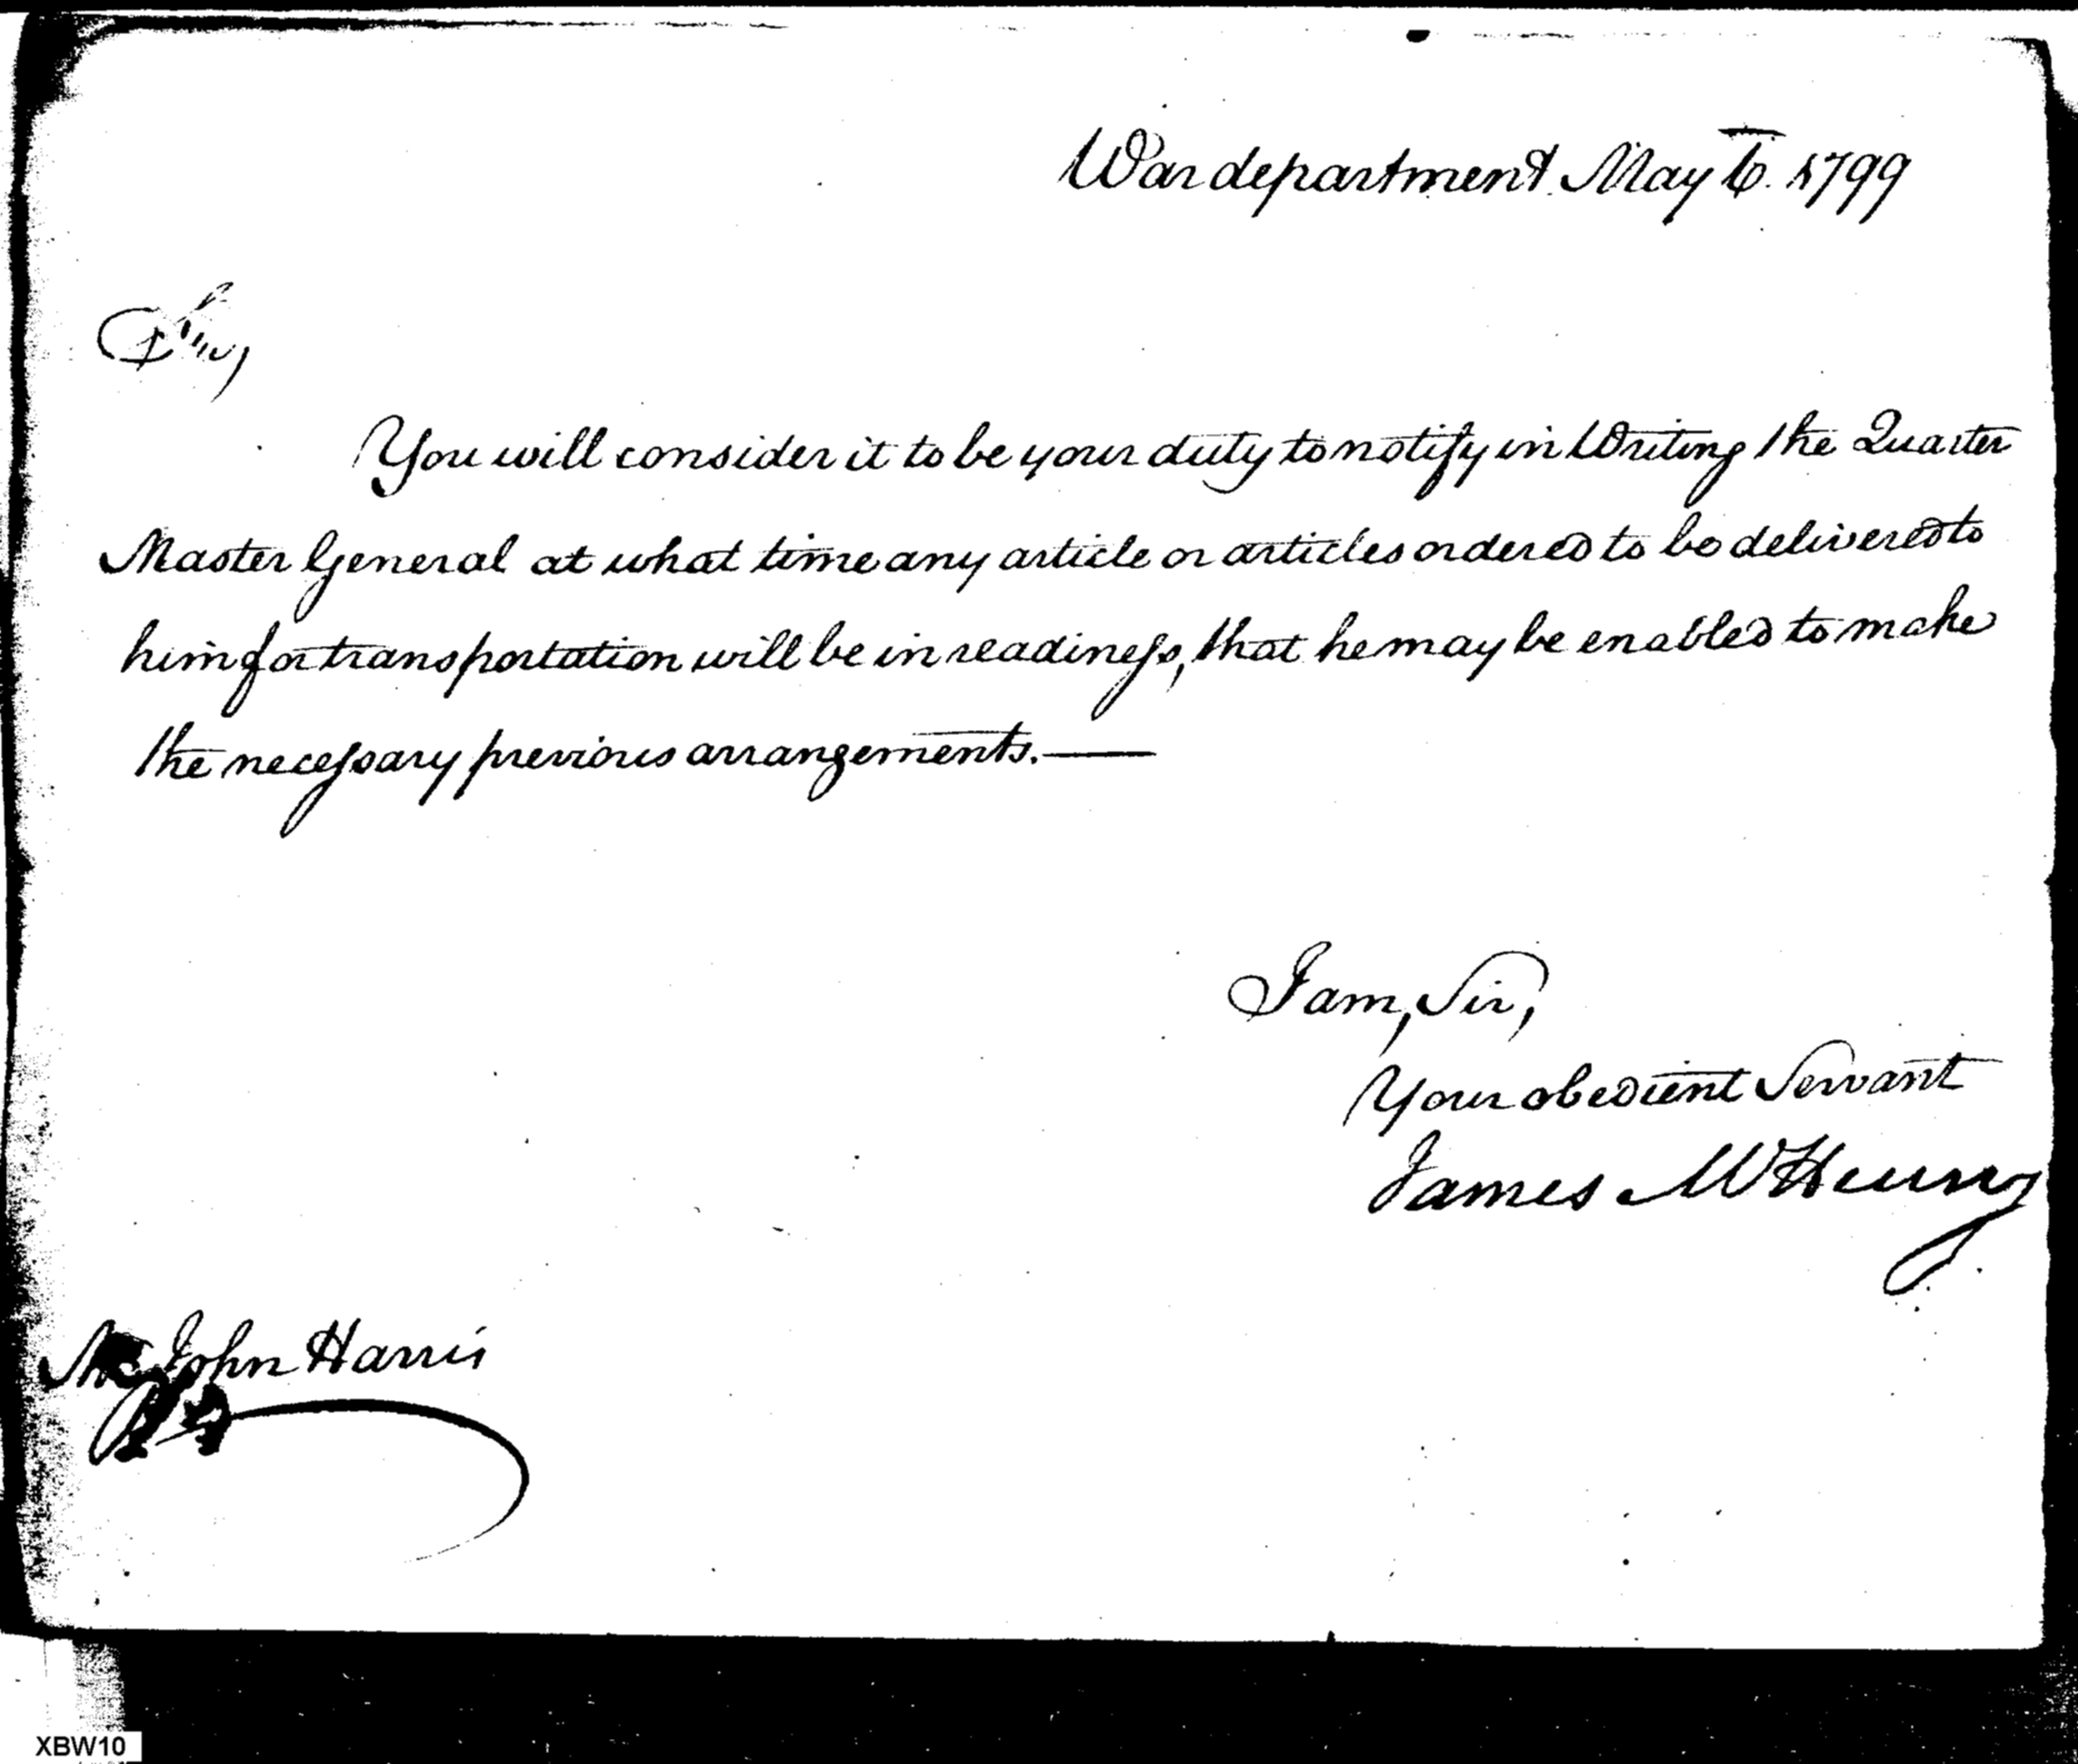 War department May 6th. 1799
Sir,
You will consider it to be your duty to notify in Writing the Quarter
Master General at what time any article or articles ordered to be delivered to
him for transportation will be in readiness, that he may be enabled to make
the necessary previous arrangements.—
I am, Sir,
Your obedient Servant
James McHenry
John Harris
XBW10